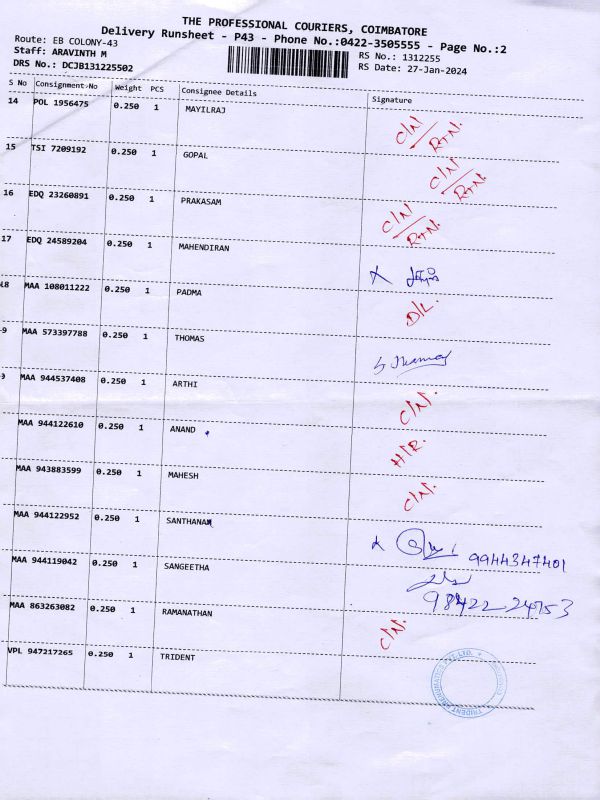 THE PROFESSIONAL COURIERS, COIMBATORE
Delivery Runsheet - P43 - Phone No.:0422-3505555 - Page No.:2
Route: EB COLONY-43
Staff: ARAVINTH M
RS No.: 1312255
DRS No.: DCJB131225502
RS Date: 27-Jan-2024
S No Consignment No Weight PCS Consignee Details Signature
14 POL 1956475 0.250 1 MAYILRAJ C/N/ R+N.
15 TSI 7209192 0.250 1 GOPAL C/N/ R+N.
16 EDQ 23260891 0.250 1 PRAKASAM C/N/ R+N.
17 EDQ 24589204 0.250 1 MAHENDIRAN X
18 MAA 108011222 0.250 1 PADMA D/L.
9 MAA 573397788 0.250 1 THOMAS
MAA 944537408 0.250 1 ARTHI C/N.
MAA 944122610 0.250 1 ANAND H/R.
MAA 943883599 0.250 1 MAHESH C/N.
MAA 944122952 0.250 1 SANTHANAM X 9944347401
MAA 944119042 0.250 1 SANGEETHA 98422 24153
MAA 863263082 0.250 1 RAMANATHAN C/N.
VPL 947217265 0.250 1 TRIDENT TRIDENT PNEUMATICS PVT. LTD.